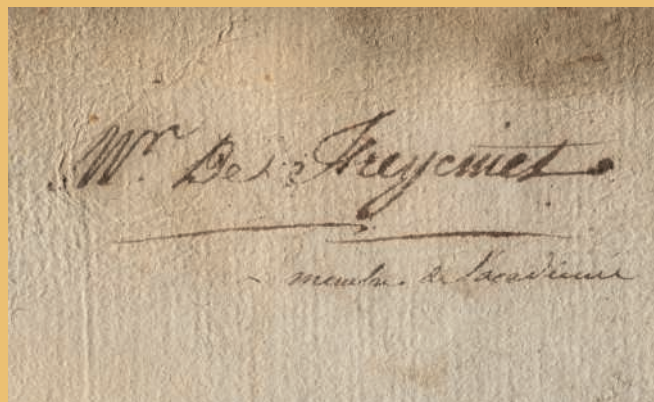 Mr. De Freycinet
membre de l'académie